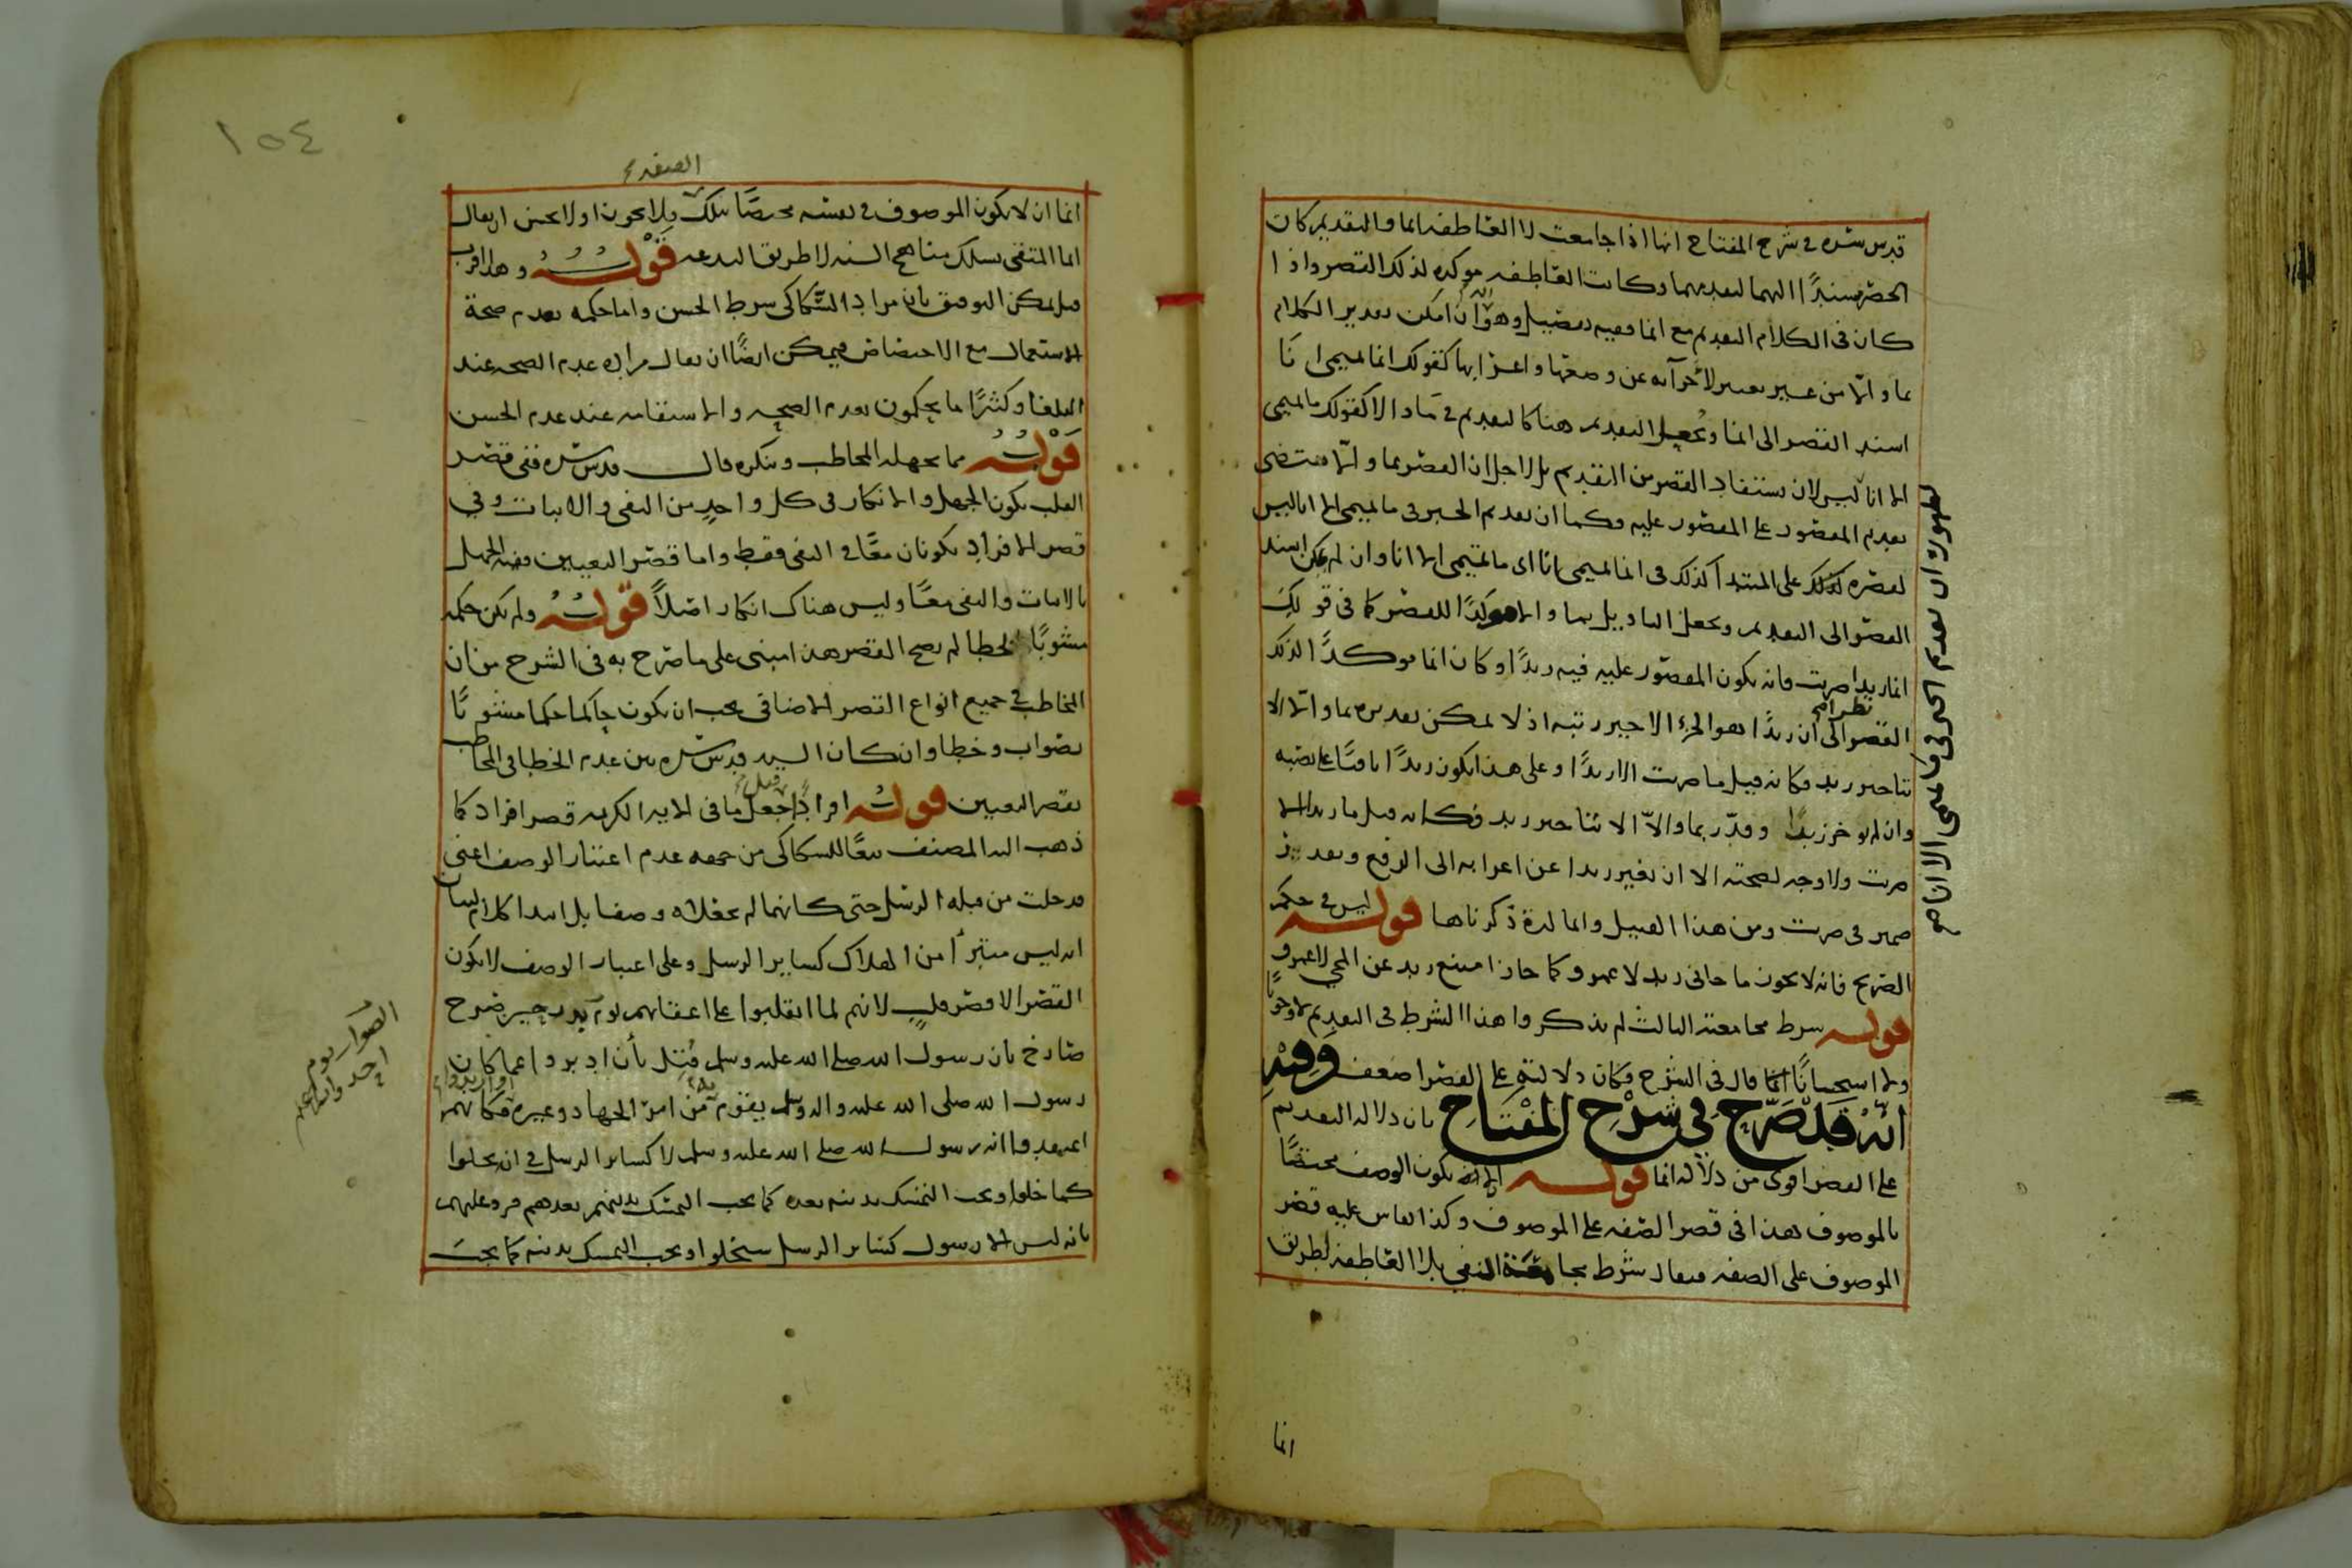 قدس سره في شرح المفتاح انها اذا جامعت لا العاطفه انما والتقديم كان
الحصر مسندًا اليهما لتقديمهما وكانت العاطفه موكده لذلك القصر واذا
كان في الكلام التقديم مع انما ففيه تفصيل وهو أنه ان امكن تقدير الكلام
بما والا من غير تغيير لأجزآئه عن وضعها واعرابها كقولك انما تميمى انا
اسند القصر الى انما وتُجعل التقديم هنا كالتقديم في ما والا كقولك ما تميمى
الا انا ليس لان يستفاد القصر من التقديم بل لاجل ان القصر بما والا مقتضى
تقديم المقصور على المقصور عليه وكما ان تقديم الخبر في ما تميمى الا انا ليس
لقصره كذلك على المبتدأ كذلك في انما تميمى انا اى ما تميمى الا انا وان لم يمكن اسند
القصر الى التقديم وتجعل التاويل بما والا موكدًا للقصر كما في قولك
انما زيدا ضربت فانه يكون المقصور عليه فيه زيدًا وكان انما موكدًا لذلك
القصر نظرا الى أن زيدًا هو الجزء الاخير رتبه اذ لا يمكن تقديره بما والا الا
بتاخير زيد فكانه قيل ما ضربت الا زيدًا وعلى هذا يكون زيدًا باقيًا على نصبه
وان لم يوخر زيدًا وقدّر بما والاّ الا بتاخير زيد فكانه قيل ما زيدا الا
ضربت ولا وجه لصحته الا ان تغير زيدا عن اعرابه الى الرفع وتقدير
ضمير في ضربت ومن هذا القبيل وانما لدة ذكرناها قوله ليس في حكم
الصريح فانه لا يجوز ما جاني زيد لا عمرو كما جاز امتنع زيد عن المجي لا عمرو
قوله شرط مجامعته الثالث لم يذكروا هذا الشرط في التقديم لا وجوبًا
ولا استحسانًا انما قال في الشرح فكان دلالته على القصر اضعف وَفِيْهِ
انّهُ قَدْ صَرّحَ فِي شَرْحِ المِفْتَاحِ بان دلاله التقديم
على القصر اقوى من دلاله انما قوله الا انه يكون الوصف مختصًا
بالموصوف هذا في قصر الصفه على الموصوف وكذا القاس عليه قصر
الموصوف على الصفه فيقال شرط مجامعة النفي بلا العاطفه لطريق
انما
لظهور ان تقديم الخبر في ما تميمى الا انا
١٥٤
الصفه
انما ان لا يكون الموصوف في نفسه مختصًا بتلك فلا يجوز او لا يحسن ان يقال
انما المتقى يسلك مناهج السنه لا طريق البدعه قوله وهذا اقرب
قيل يمكن التوفيق بان مراد السّكاكى شرط الحسن واما حكمه بعدم صحة
الاستعمال مع الاختصاص فيمكن ايضًا ان يقال مراده عدم الصحه عند
البلغا وكثيرًا ما يحكمون بعدم الصحه والاستقامه عند عدم الحسن
قوله مما يجهله المخاطب وينكره قال قدس سره ففى قصر
القلب يكون الجهل والانكار في كل واحدٍ من النفي والاثبات وفي
قصر الافراد يكونان معًا في النفي فقط واما قصر التعيين ففيه الجهل
بالاثبات والنفي معًا وليس هناك انكار اصلاً قوله ولم يكن حكمه
مشوبًا بخطا لم يصح القصر هذا مبنى على ما صرح به في الشرح من ان
المخاطب في جميع انواع القصر الاضافى يجب ان يكون حاكما حكما مشوبًا
بصواب وخطا وان كان السيد قدس سره بين عدم الخطا في المخاطب
بقصر التعيين قوله افرادًا قيل جعل ما في الايه الكريمه قصر افراد كما
ذهب اليه المصنف تبعًا للسكاكى من جهه عدم اعتبار الوصف اعنى
قد خلت من قبله الرسل حتى كانهما لم يجعلاه وصفا بل ابتدا كلام لبيان
انه ليس متبرأ من الهلاك كساير الرسل وعلى اعتبار الوصف لا يكون
القصر الا قصر قلبٍ لانهم لما انقلبوا على اعقابهم يوم بدر حين صرح
صارخ بان رسول الله صلى الله عليه وسلم قُتِل بأن ادبروا عما كان
رسول الله صلى الله عليه واله وسلم يقوم به من امر الجهاد وغيره فكانهم
اعتقدوا انه رسول الله صلى الله عليه وسلم لا كساير الرسل في ان يخلوا
كما خلوا ويجب التمسك بدينه بعده كما يجب التمسك بدينهم بعدهم فرد عليهم
بانه ليس الا رسول كساير الرسل سيخلوا ويجب التمسك بدينه كما يجب
الصواب يوم
احد والله اعلم